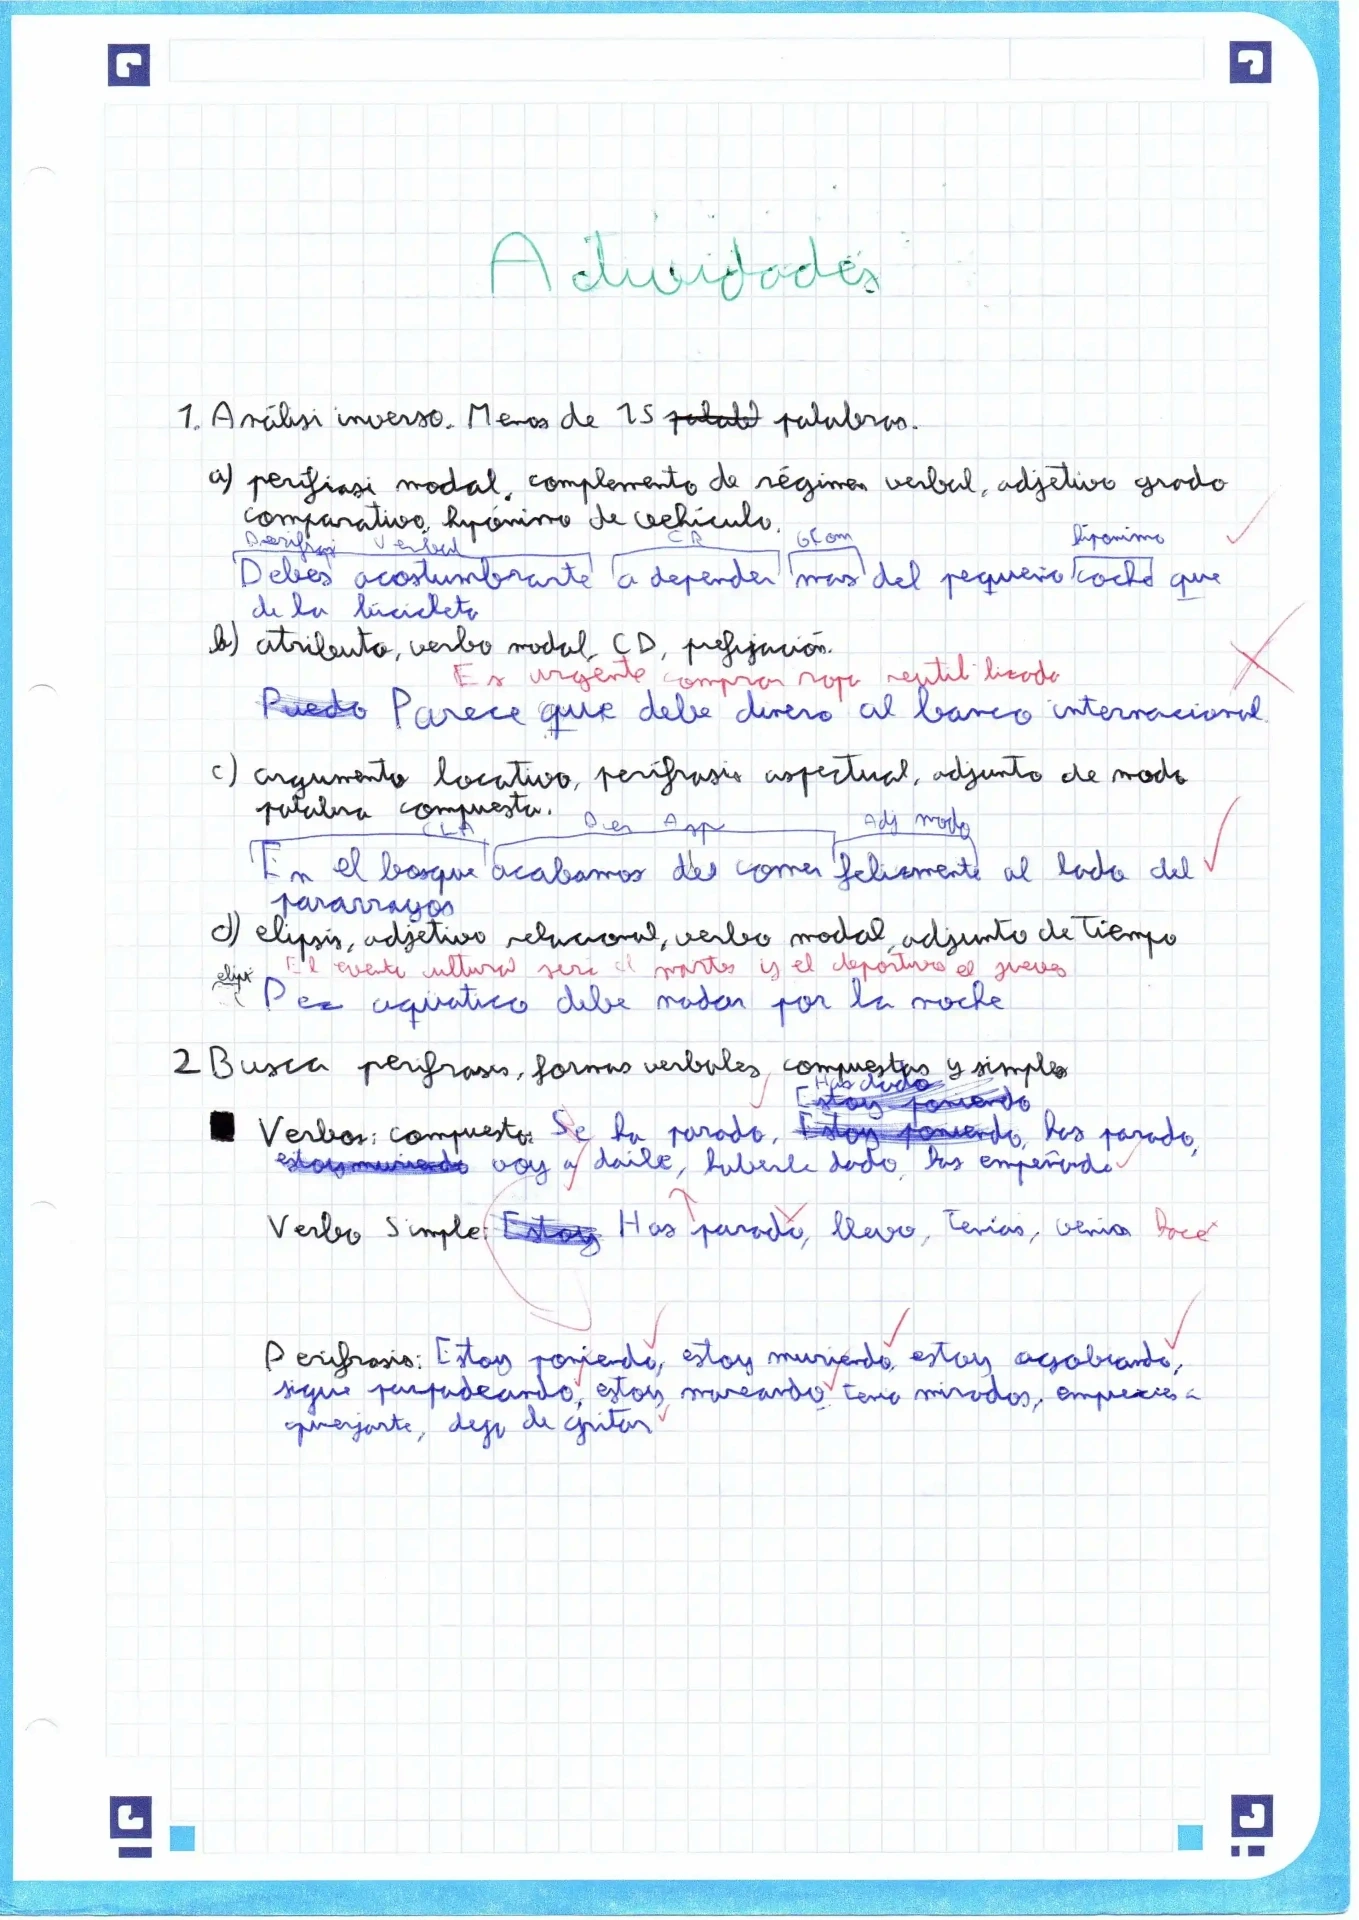 Actividades
1. Análisi inverso. Menos de 15 palabras.
a) perifrasi modal, complemento de régimen verbal, adjetivo grado
comparativo, hipónimo de vehículo.
Perifrasi Verbal CR GCom hiponimo
Debes acostumbrarte a depender mas del pequeño coche que
de la bicicleta
b) atributo, verbo modal, CD, prefijación.
Es urgente comprar ropa reutilizada
Puedo Parece que debe dinero al banco internacional
c) argumento locativo, perífrasis aspectual, adjunto de modo
palabra compuesta.
CLA Per Asp Adj modo
En el bosque acabamos de comer felizmente al lado del
pararrayos
d) elipsis, adjetivo relacional, verbo modal, adjunto de Tiempo
El evento cultural será el martes y el deportivo el jueves
Pez aquatico debe nadar por la noche
2 Busca perifrasis, formas verbales, compuestas y simples
Has dado
Estoy poniendo
Verbos: compuesto: Se ha parado, Estoy poniendo, has parado,
estoy muriendo voy a daile, haberle dado, has empeñado
Verbo Simple: Estoy Has parado, llevo, Tenías, venia
Perifrasis: Estoy poniendo, estoy muriendo, estoy agobiando,
sigue parpadeando, estoy mareando, tenia mirados, empiezes a
quejarte, dejo de gritar